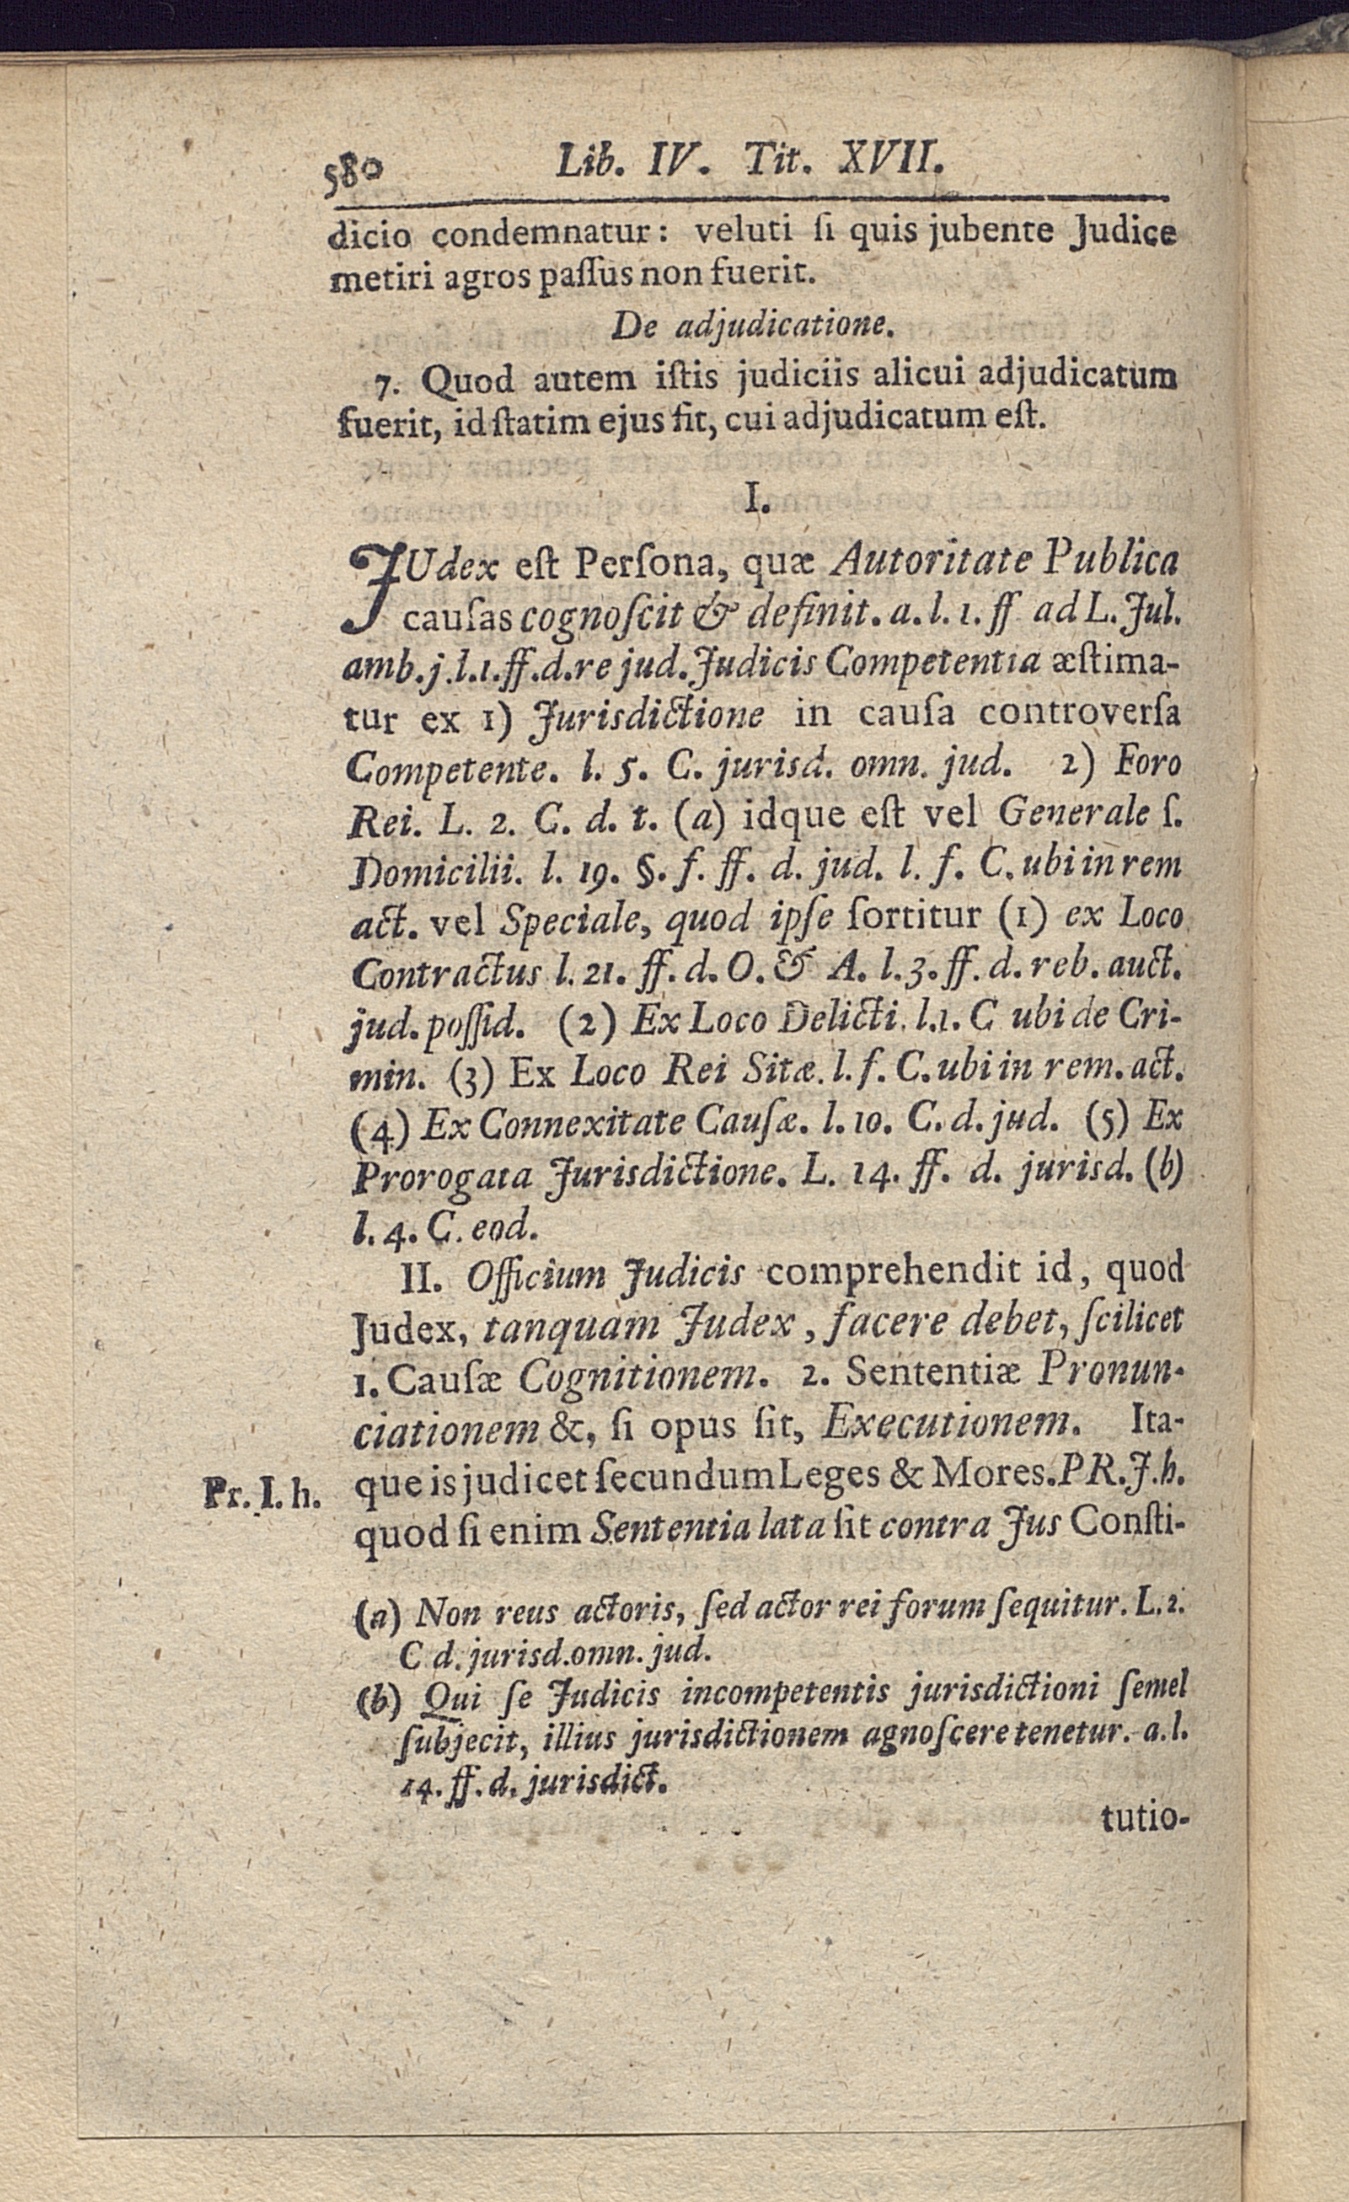 580 Lib. IV. Tit. XVII.
dicio condemnatur: veluti ſi quis jubente Judice
metiri agros paſſus non fuerit.
De adjudicatione.
7. Quod autem iſtis judiciis alicui adjudicatum
fuerit, id ſtatim ejus fit, cui adjudicatum eſt.
I.
JUdex eſt Perſona, quæ Autoritate Publica
cauſas cognoſcit & definit. a. l. 1. ff ad L. Jul.
amb. j. l. 1. ff. d. re jud. Judicis Competentia æſtima-
tur ex 1) Jurisdictione in cauſa controverſa
Competente. l. 5. C. jurisd. omn. jud. 2) Foro
Rei. L. 2. C. d. t. (a) idque eſt vel Generale ſ.
Domicilii. l. 19. §. f. ff. d. jud. l. f. C. ubi in rem
act. vel Speciale, quod ipſe ſortitur (1) ex Loco
Contractus l. 21. ff. d. O. & A. l. 3. ff. d. reb. auct.
jud. poſſid. (2) Ex Loco Delicti. l. 1. C ubi de Cri-
min. (3) Ex Loco Rei Sitæ. l. f. C. ubi in rem. act.
(4) Ex Connexitate Cauſæ. l. 10. C. d. jud. (5) Ex
Prorogata Jurisdictione. L. 14. ff. d. jurisd. (b)
l. 4. C. eod.
II. Officium Judicis comprehendit id, quod
Judex, tanquàm Judex, facere debet, ſcilicet
1. Cauſæ Cognitionem. 2. Sententiæ Pronun-
ciationem &, ſi opus ſit, Executionem. Ita-
Pr. I. h. que is judicet ſecundum Leges & Mores. PR. J. h.
quod ſi enim Sententia lata ſit contra Jus Conſti-
(a) Non reus actoris, ſed actor rei forum ſequitur. L. 2.
C d. jurisd. omn. jud.
(b) Qui ſe Judicis incompetentis jurisdictioni ſemel
ſubjecit, illius jurisdictionem agnoſcere tenetur. a. l.
14. ff. d. jurisdict.
tutio-